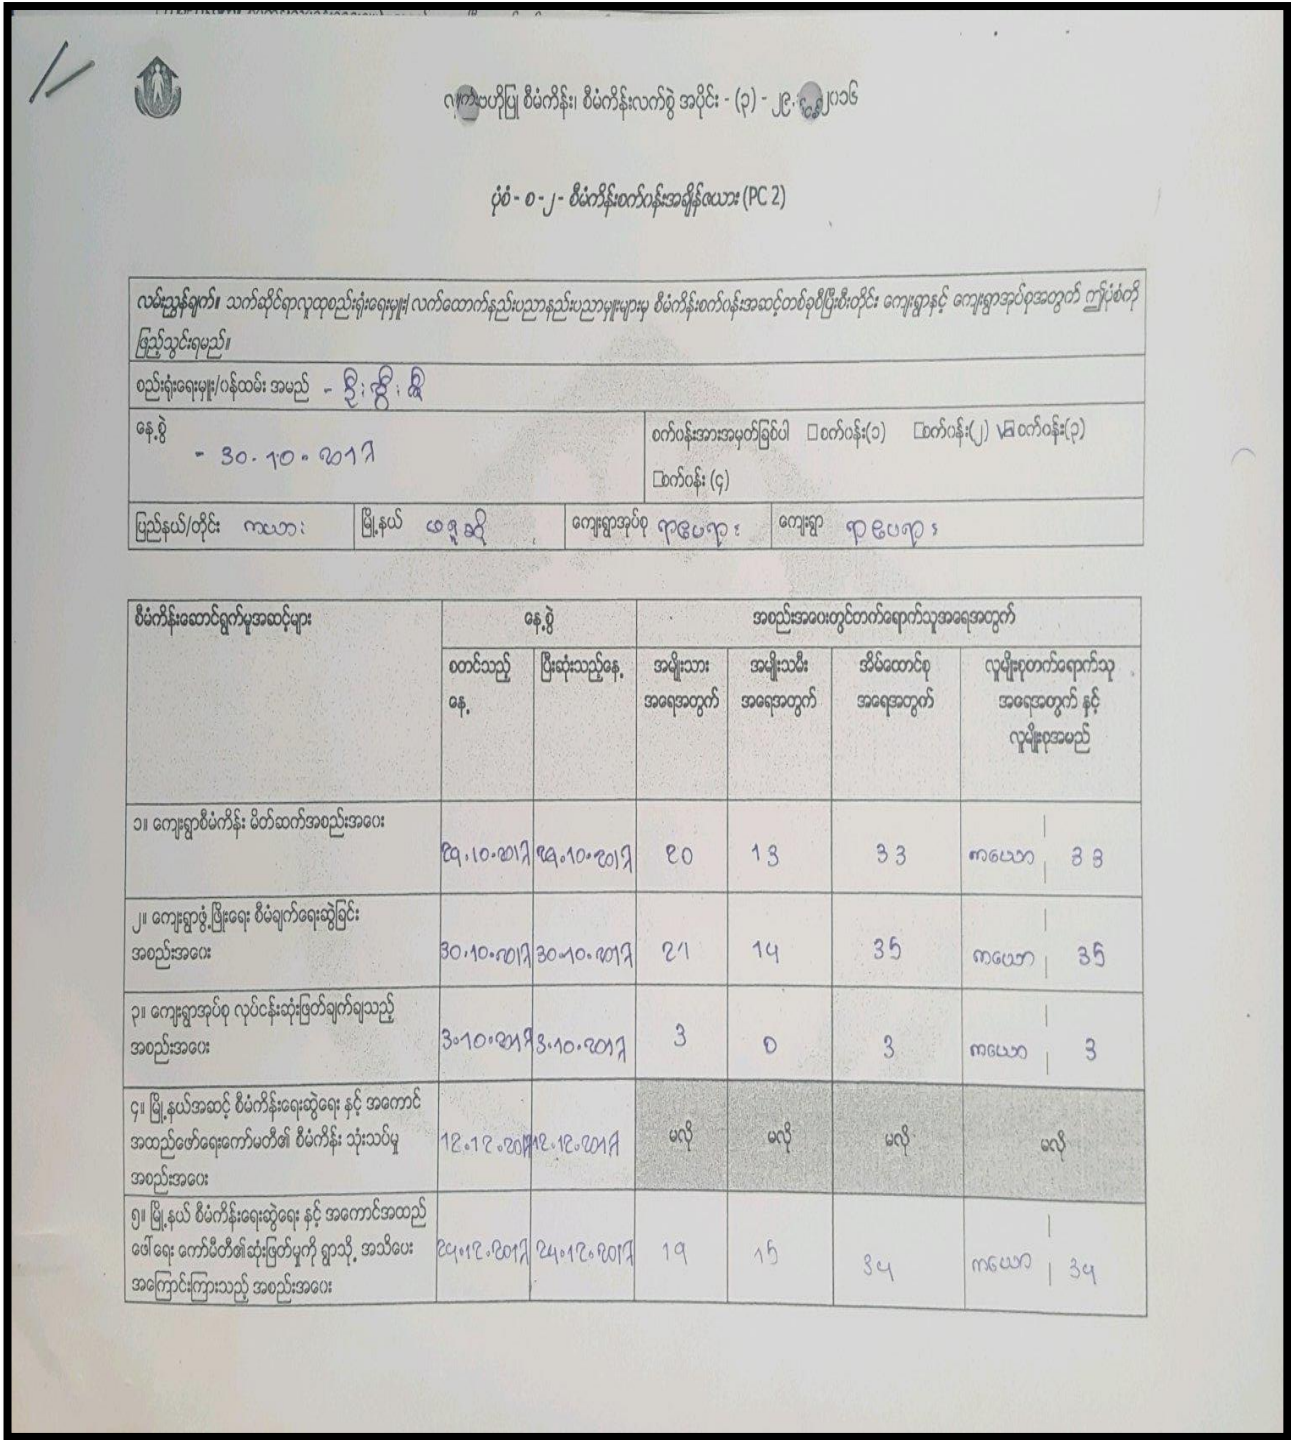 ဗဟိုပြု စီမံကိန်း၊ စီမံကိန်းလက်စွဲ အပိုင်း - (၃) - ၂၉, ၂၀၁၆
ပုံစံ - စ -၂ - စီမံကိန်းစက်ဝန်းအချိန်ဇယား (PC 2)
လမ်းညွှန်ချက်။ သက်ဆိုင်ရာလူထုစည်းရုံးရေးမှူး/ လက်ထောက်နည်းပညာနည်းပညာမှူးများမှ စီမံကိန်းစက်ဝန်းအဆင့်တစ်ခုစီပြီးစီးတိုင်း ကျေးရွာနှင့် ကျေးရွာအုပ်စုအတွက် ဤပုံစံကို
ဖြည့်သွင်းရမည်။
စည်းရုံးရေးမှူး/ဝန်ထမ်း အမည် -
နေ့စွဲ
- 30.10.2017
စက်ဝန်းအားအမှတ်ခြစ်ပါ □စက်ဝန်း(၁) □စက်ဝန်း(၂) ☑စက်ဝန်း(၃)
□စက်ဝန်း (၄)
ပြည်နယ်/တိုင်း ကယား မြို့နယ် ဖရူဆို ကျေးရွာအုပ်စု ကျေးရွာ
စီမံကိန်းဆောင်ရွက်မှုအဆင့်များ နေ့စွဲ အစည်းအဝေးတွင်တက်ရောက်သူအရေအတွက်
စတင်သည့် ပြီးဆုံးသည့်နေ့ အမျိုးသား အမျိုးသမီး အိမ်ထောင်စု လူမျိုးစုတက်ရောက်သူ
နေ့ အရေအတွက် အရေအတွက် အရေအတွက် အရေအတွက် နှင့်
လူမျိုးစုအမည်
၁။ ကျေးရွာစီမံကိန်း မိတ်ဆက်အစည်းအဝေး
29.10.2017 29.10.2017 20 13 33 ကယော | 33
၂။ ကျေးရွာဖွံ့ဖြိုးရေး စီမံချက်ရေးဆွဲခြင်း
အစည်းအဝေး 30.10.2017 30.10.2017 21 14 35 ကယော | 35
၃။ ကျေးရွာအုပ်စု လုပ်ငန်းဆုံးဖြတ်ချက်ချသည့်
အစည်းအဝေး 3.10.2017 3.10.2017 3 0 3 ကယော | 3
၄။ မြို့နယ်အဆင့် စီမံကိန်းရေးဆွဲရေး နှင့် အကောင်
အထည်ဖော်ရေးကော်မတီ၏ စီမံကိန်း သုံးသပ်မှု 12.12.2017 12.12.2017 မလို မလို မလို မလို
အစည်းအဝေး
၅။ မြို့နယ် စီမံကိန်းရေးဆွဲရေး နှင့် အကောင်အထည်
ဖေါ်ရေး ကော်မီတီ၏ဆုံးဖြတ်မှုကို ရွာသို့ အသိပေး 24.12.2017 24.12.2017 19 15 34 ကယော | 34
အကြောင်းကြားသည့် အစည်းအဝေး